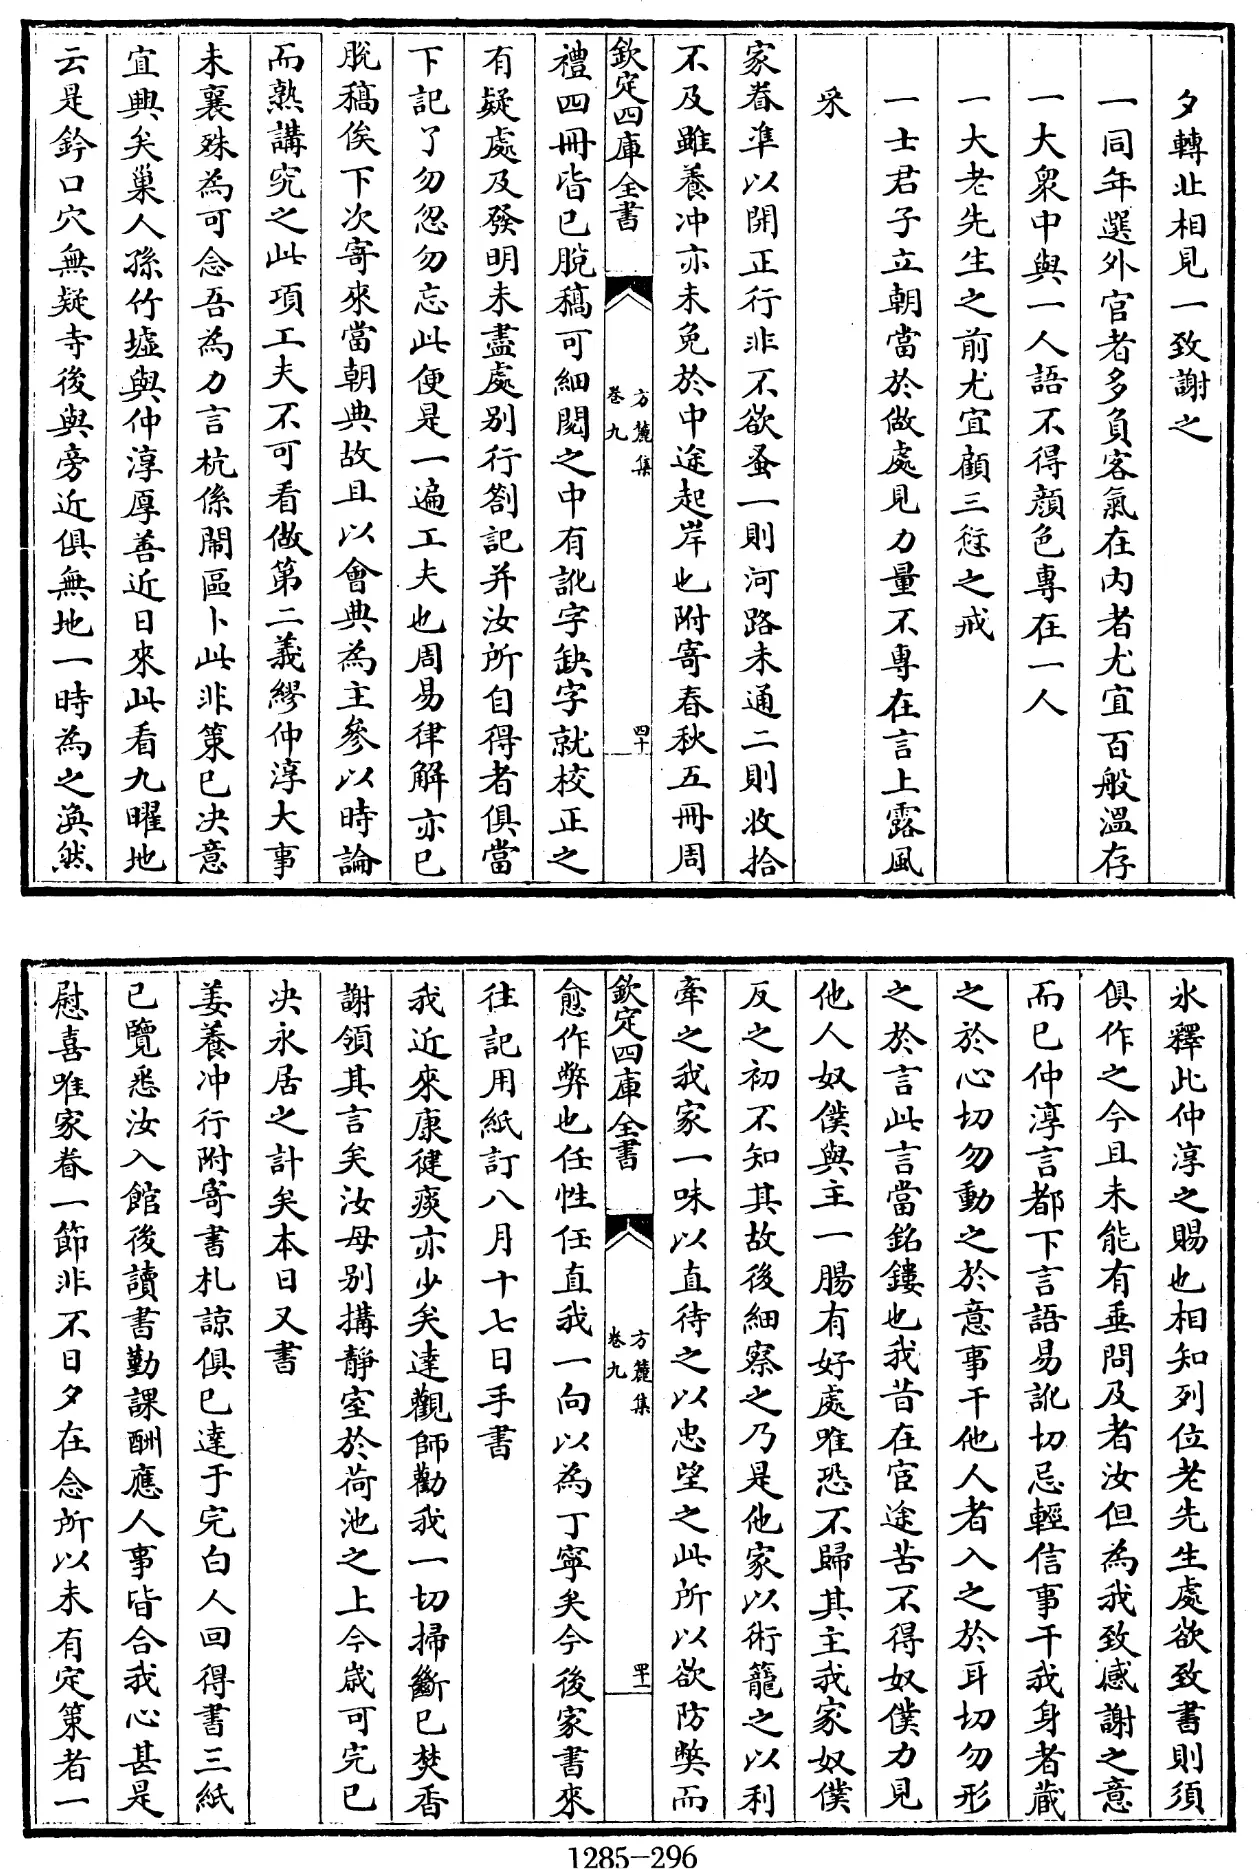 夕轉北相見一致謝之
一同年選外官者多負客氣在内者尤宜百般溫存
一大衆中與一人語不得顔色專在一人
一大老先生之前尤宜顧三愆之戒
一士君子立朝當於做處見力量不專在言上露風
采
家眷凖以開正行非不欲蚤一則河路未通二則收拾
不及雖養冲亦未免於中途起岸也附寄春秋五冊周
欽定四庫全書
方麓集
卷九
四十
禮四冊皆已脫稿可細閱之中有訛字缺字就校正之
有疑處及發明未盡處别行劄記并汝所自得者俱當
下記了勿忽勿忘此便是一遍工夫也周易律解亦已
脫稿俟下次寄來當朝典故且以會典為主參以時論
而熟講究之此項工夫不可看做第二義繆仲淳大事
未襄殊為可念吾為力言杭係鬧區卜此非策已决意
宜興矣巢人孫竹墟與仲淳厚善近日來此看九曜地
云是鈐口穴無疑寺後與旁近俱無地一時為之渙然
氷釋此仲淳之賜也相知列位老先生處欲致書則須
俱作之今且未能有垂問及者汝但為我致感謝之意
而已仲淳言都下言語易訛切忌輕信事干我身者藏
之於心切勿動之於意事干他人者入之於耳切勿形
之於言此言當銘鏤也我昔在宦途苦不得奴僕力見
他人奴僕與主一腸有好處唯恐不歸其主我家奴僕
反之初不知其故後細察之乃是他家以術籠之以利
牽之我家一味以直待之以忠望之此所以欲防弊而
欽定四庫全書
方麓集
卷九
四十一
愈作弊也任性任直我一向以為丁寧矣今後家書來
往記用紙訂八月十七日手書
我近來康健痰亦少矣達觀師勸我一切掃斷已焚香
謝領其言矣汝母别搆静室於荷池之上今歲可完已
决永居之計矣本日又書
姜養冲行附寄書札諒俱已達于完白人回得書三紙
已覽悉汝入館後讀書勤課酬應人事皆合我心甚是
慰喜唯家眷一節非不日夕在念所以未有定策者一
1285-296